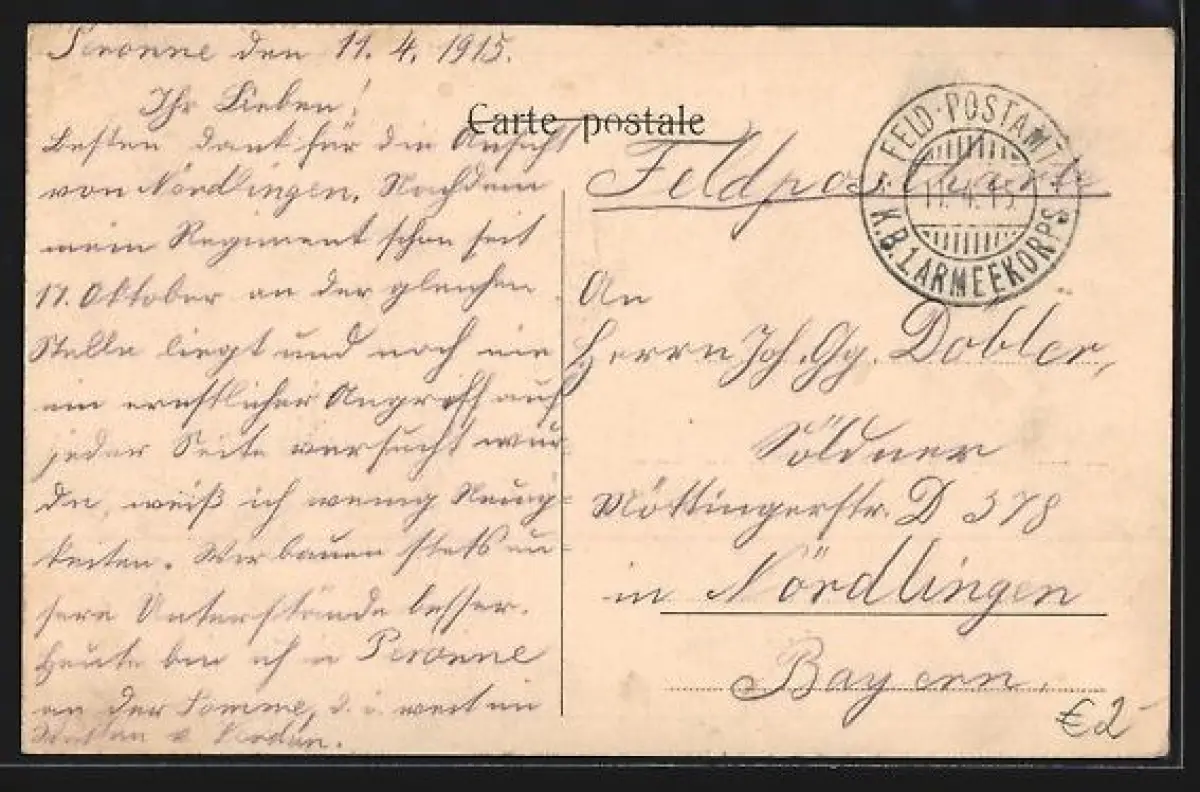 Peronne den 11. 4. 1915.
Ihr Lieben!
Besten Dank für die Ansicht
von Nördlingen. Nachdem
mein Regiment schon seit
17. Oktober an der gleichen
Stelle liegt und noch nie
ein ernstlicher Angriff auf
jeder Seite versucht wur-
de, weiß ich wenig Neuig-
keiten. Wir bauen stets un-
sere Unterstände besser.
Heute bin ich in Peronne
an der Somme, d. i. weit im
Carte postale
Feldpostkarte
FELD-POSTAMT
11.4.15
K.B.1.ARMEEKORPS
An
Herrn Joh. Gg. Döbler,
Söldner
Möttingerstr. D 378
in Nördlingen
Bayern.
€2-